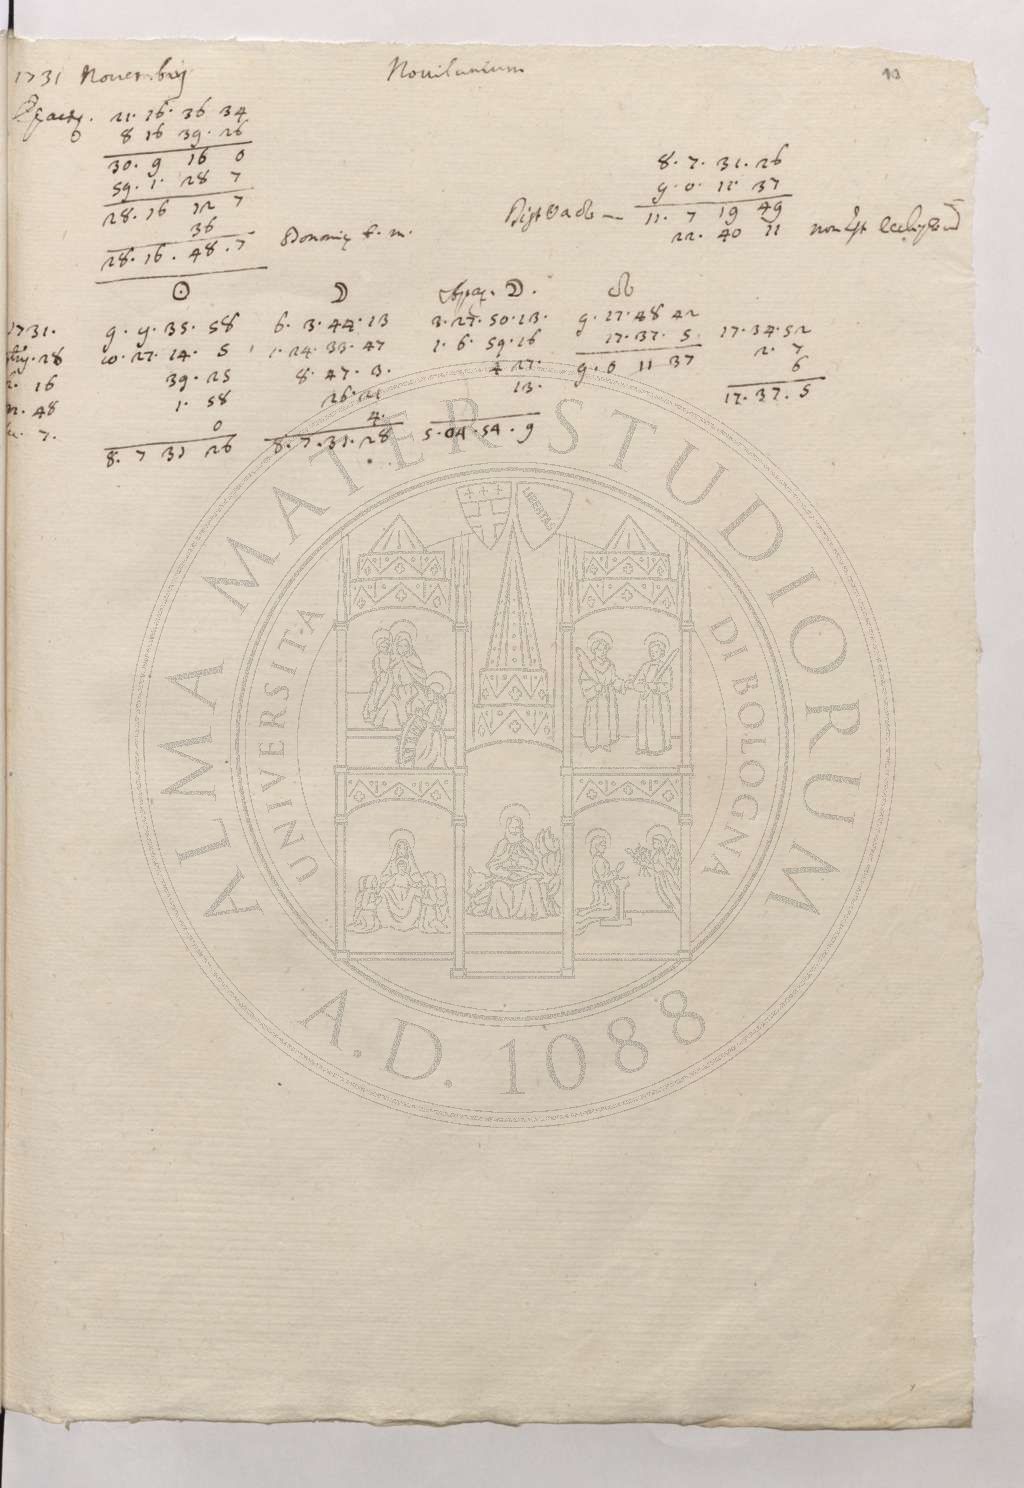 1731 Novembris Novilunium 10
Epactæ. 21. 16. 36 34
0 8 16 39. 26
30. 9 16 0
59. 1. 28 7
28. 16 12 7
36
28. 16. 48. 7
8. 7. 31. 26
9. 0. 11. 37
Dist ☉ a ☊ — 11. 7 19 49
22. 40 11 non est
☉ ☽ Apog. ☽. ☊
1731. 9. 9. 35. 58 6. 3. 44. 13 3. 27. 50. 13. 9. 17. 48 42
28 10. 27. 14. 5 1. 24. 33. 47 1. 6. 59. 16 17. 37. 5. 17. 34. 52
16 39. 25 8. 47. 3. 4 27. 9. 0 11 37 2. 7
48 1. 58 26. 21 13. 6
7. 0 4. 17. 37. 5
8. 7 31 26 8. 7. 31. 28 5. 04. 54. 9
ALMA MATER STUDIORUM
UNIVERSITÀ DI BOLOGNA
LIBERTAS
A.D. 1088